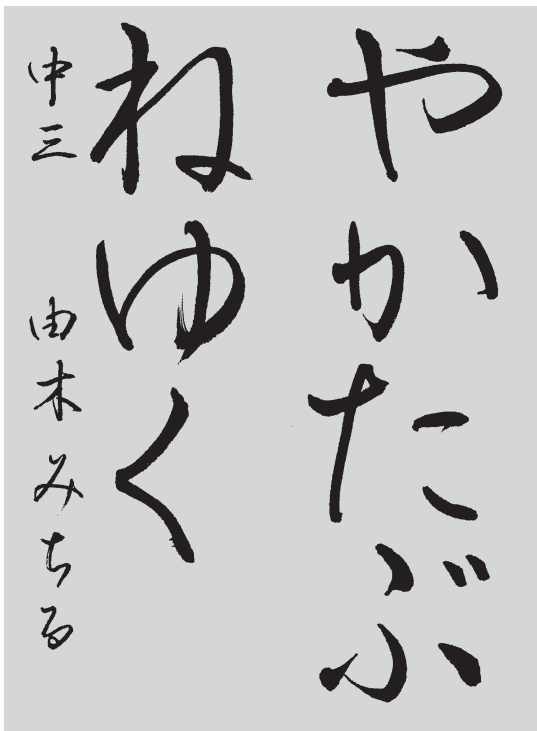 やかたぶ
ねゆく
中三 由木みちる